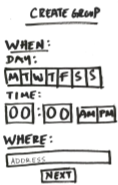 CREATE GROUP
WHEN:
DAY:
M T W T F S S
TIME:
00:00 AM PM
WHERE:
ADDRESS
NEXT